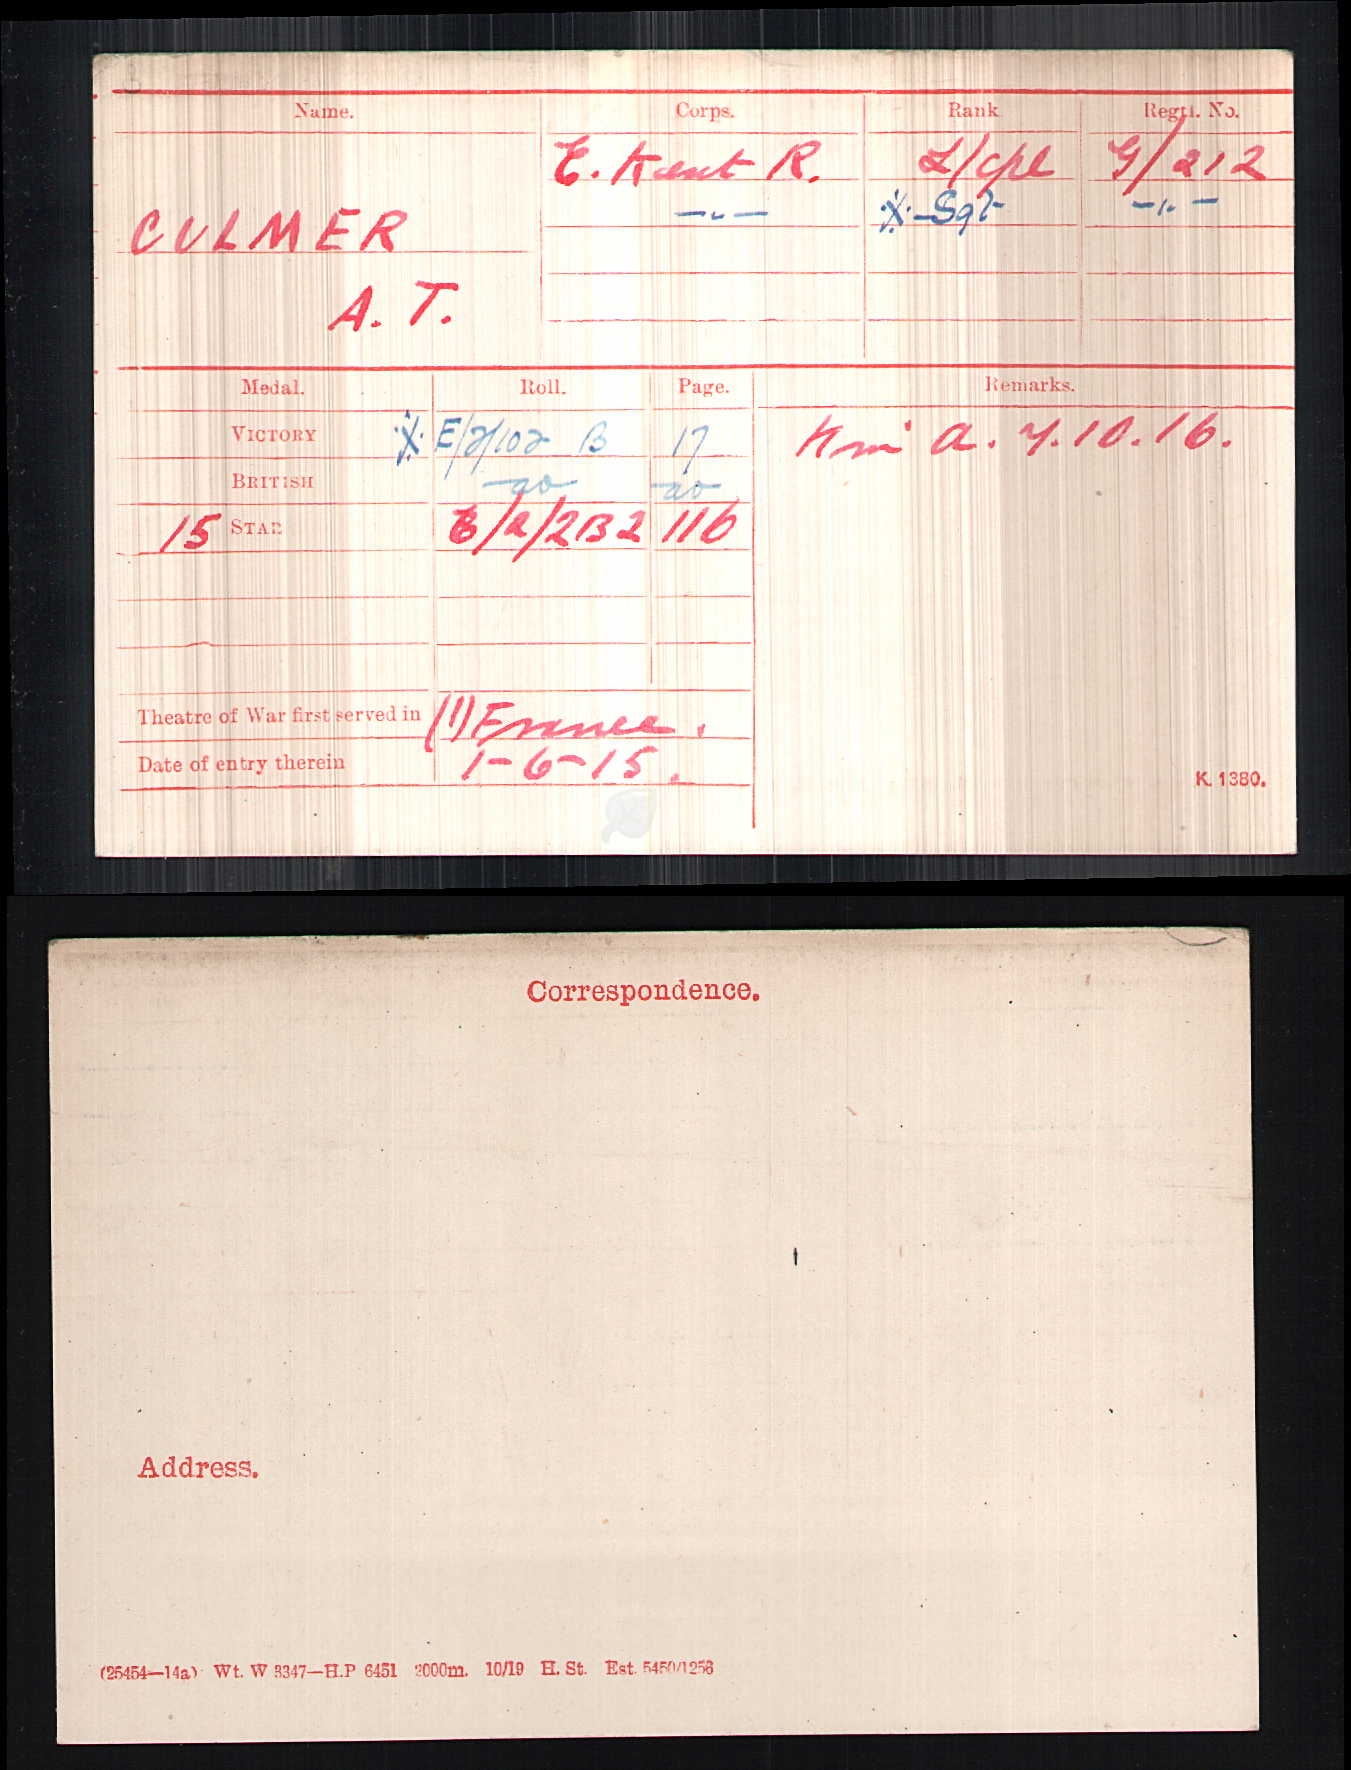 Name. Corps. Rank Regtl. No.
E. Kent R. L/Cpl G/212
—"— ※ Sgt —"—
CULMER
A. T.
Medal. Roll. Page. Remarks.
VICTORY ※ E/2/102 B 17 K in A. 7.10.16.
BRITISH do do
15 STAR E/2/2B2 116
Theatre of War first served in (1) France.
Date of entry therein 1-6-15.
K. 1380.
Correspondence.
Address.
(25454—14a) Wt. W 3347—H.P 6451 2000m. 10/19 H. St. Est. 5450/1256